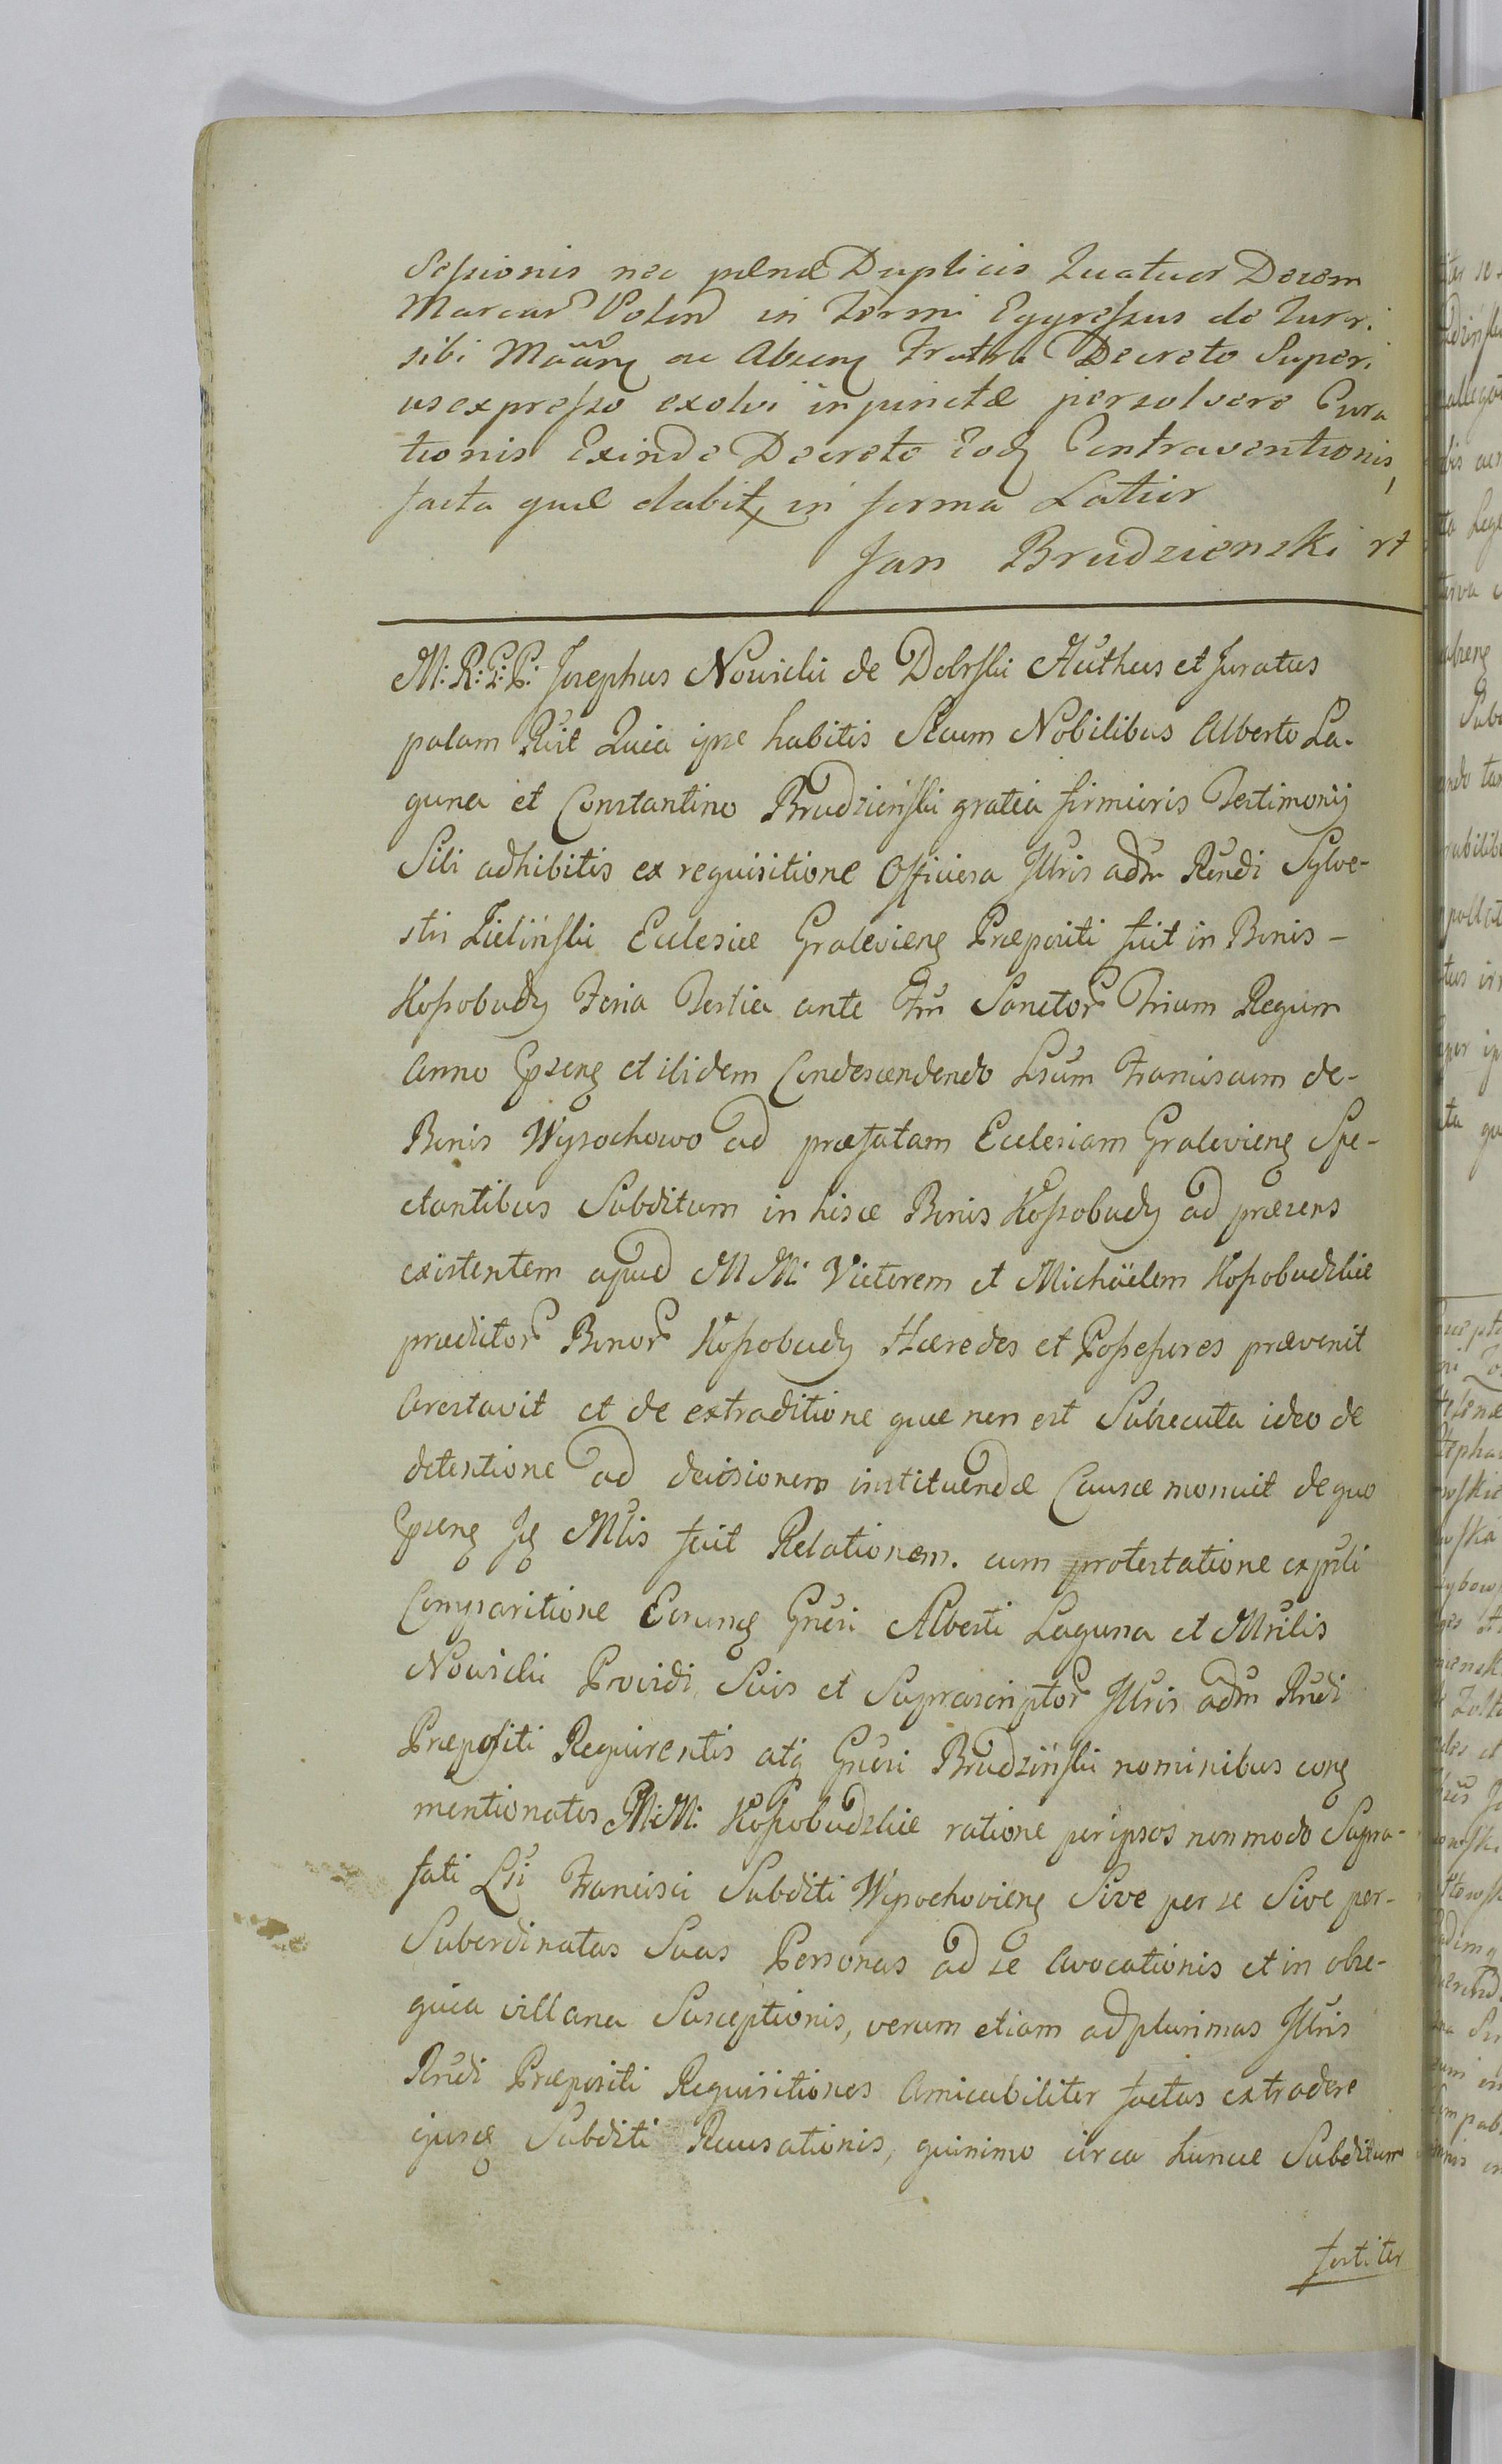 Seſsionis nec pœnæ Duplicis Quatuor Decem
Marcar Polon in Termi Egyreſsus de Turr.
sibi ac Absenz Decreto Super.
us expreſso exolvi injunctæ persolvere Cura
tionis Exinde Decreto Eodz Contraventionis,
facta quæ dabitz in forma Latior
Jan Brudzienski
M: R: G: P: Josephus Nowicki de Dobrski Authus et Juratus
palam Rūit Quia ipse habitis Secum Nobilibus Alberto La-
guna et Constantino Brudzinſki gratia firmioris Testimonij
Sibi adhibitis ex requisitione Officiosa Jllris adm̄ Rūndi Sylve-
stri Zieliński Ecclesiæ Gralevienz Præpositi fuit in Bonis -
Koſsobudy Feria Tertia ante Fm̄ Sanctor Trium Regum
Anno Epzenz et ibidem Condescendendo Lsum Franciscum de-
Bonis Wyſsochowo ad præfatam Ecclesiam Gralevienz Spe-
ctantibus Subditum in hisce Bonis Koſsobudy ad præsens
existentem apud M M: Victorem et Michäelem Koſsobudzkie
prædictor Bonor Koſsobudy Hæredes et Poſseſsores prævenit
Arestavit et de extraditione quæ non est Subsecuta ideo de
detentione ad decisionem instituendæ Causæ monuit de quo
Epzenz Jz Mlis fuit Relationem. cum protestatione ex prsli
Comparitione Eorumz Gn̄eri Alberti Laguna et Mrilis
Nowicki Providi, Suis et Suprascriptor Jllris adm Rn̄di
Præpoſiti Requirentis atq Gn̄eri Brudzińſki nominibus conz
mentionatos M: M: Koſsobudzkie ratione per ipsos non modo Supra-
fati Lsi Francisci Subditi Wyſsochovienz Sive per se Sive per-
Subordinatas Suas Personas ad se Avocationis et in obse-
quia villana Susceptionis, verum etiam ad plurimas Jllris
Rn̄di Præpositi Requisitiones Amicabiliter factas extradere
ejusz Subditi Recusationis, quinimo circa hunce Subditum
fortiter